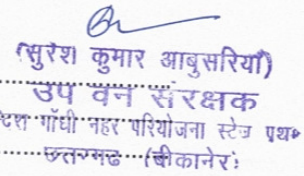 (सुरेश कुमार आबुसरियाँ)
उप वन संरक्षक
दरा गाँधी नहर परियोजना स्टेज प्रथम
छतरगढ (बीकानेर)